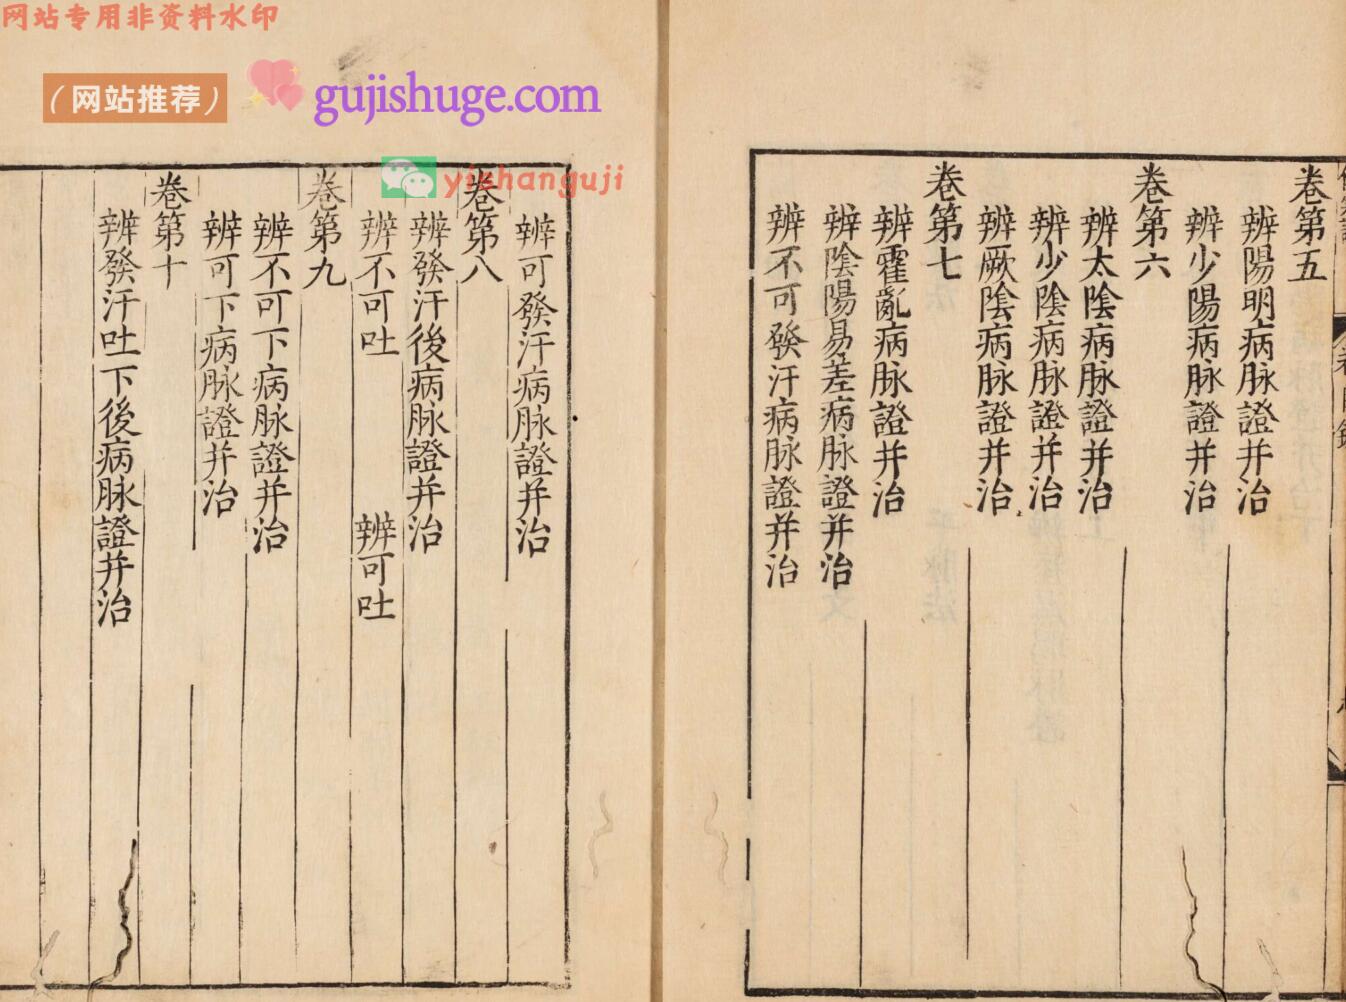 网站专用非资料水印
（网站推荐）
gujishuge.com
yishanguji
卷第五
辨陽明病脉證并治
辨少陽病脉證并治
卷第六
辨太陰病脉證并治
辨少陰病脉證并治
辨厥陰病脉證并治
卷第七
辨霍亂病脉證并治
辨陰陽易差病脉證并治
辨不可發汗病脉證并治
辨可發汗病脉證并治
卷第八
辨發汗後病脉證并治
辨不可吐 辨可吐
卷第九
辨不可下病脉證并治
辨可下病脉證并治
卷第十
辨發汗吐下後病脉證并治